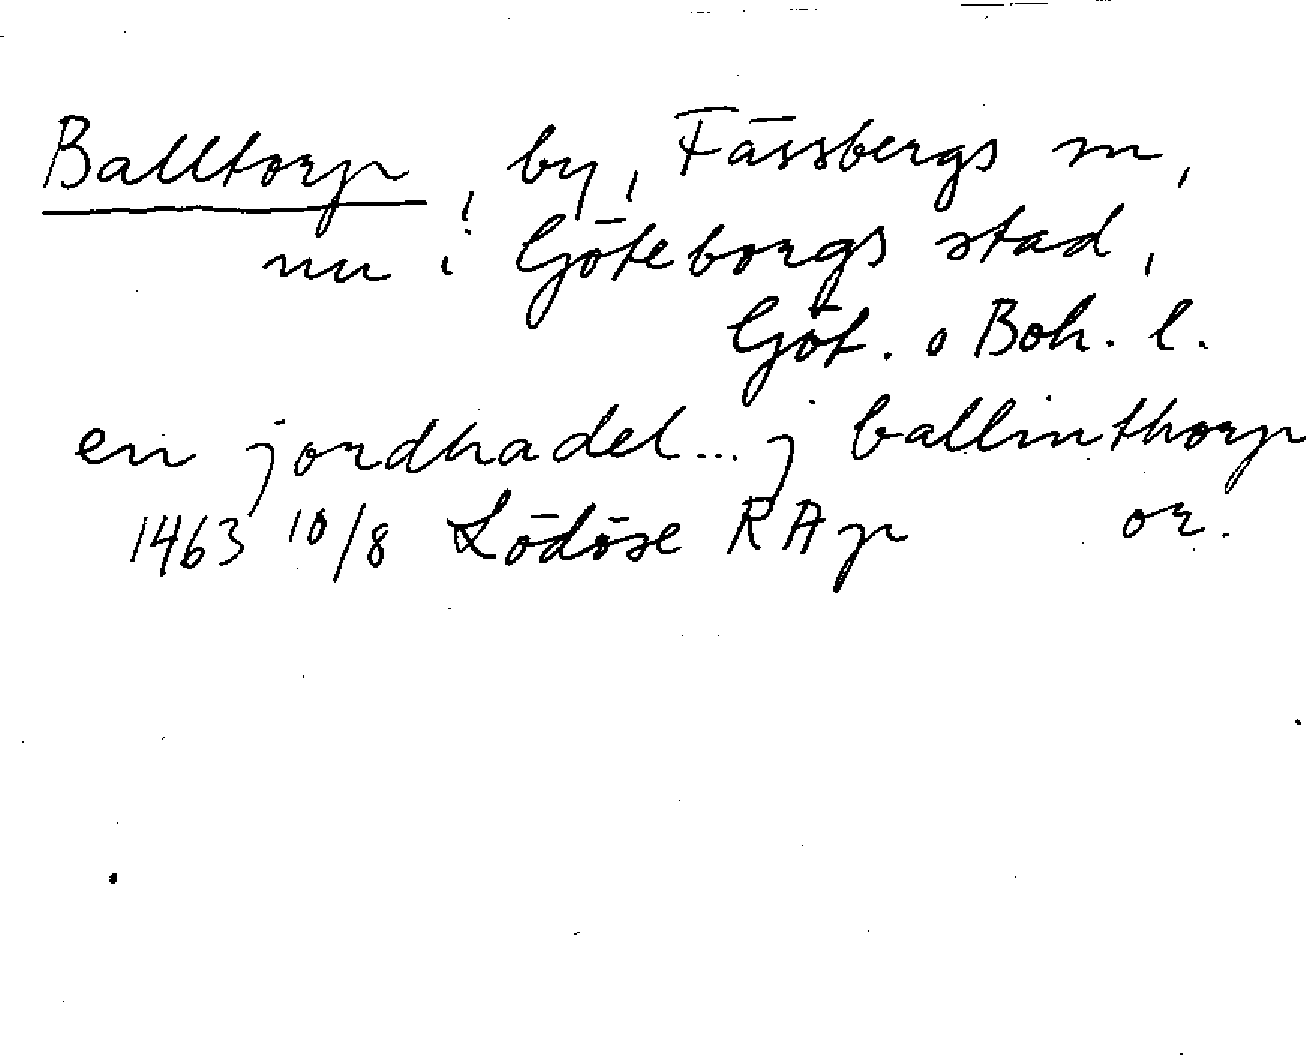 Balltorp, by, Fässbergs sn,
nu i Göteborgs stad,
Göt. o Boh. l.
en jordhadel... j ballinthorp
1463 10/8 Lödöse RAp or.